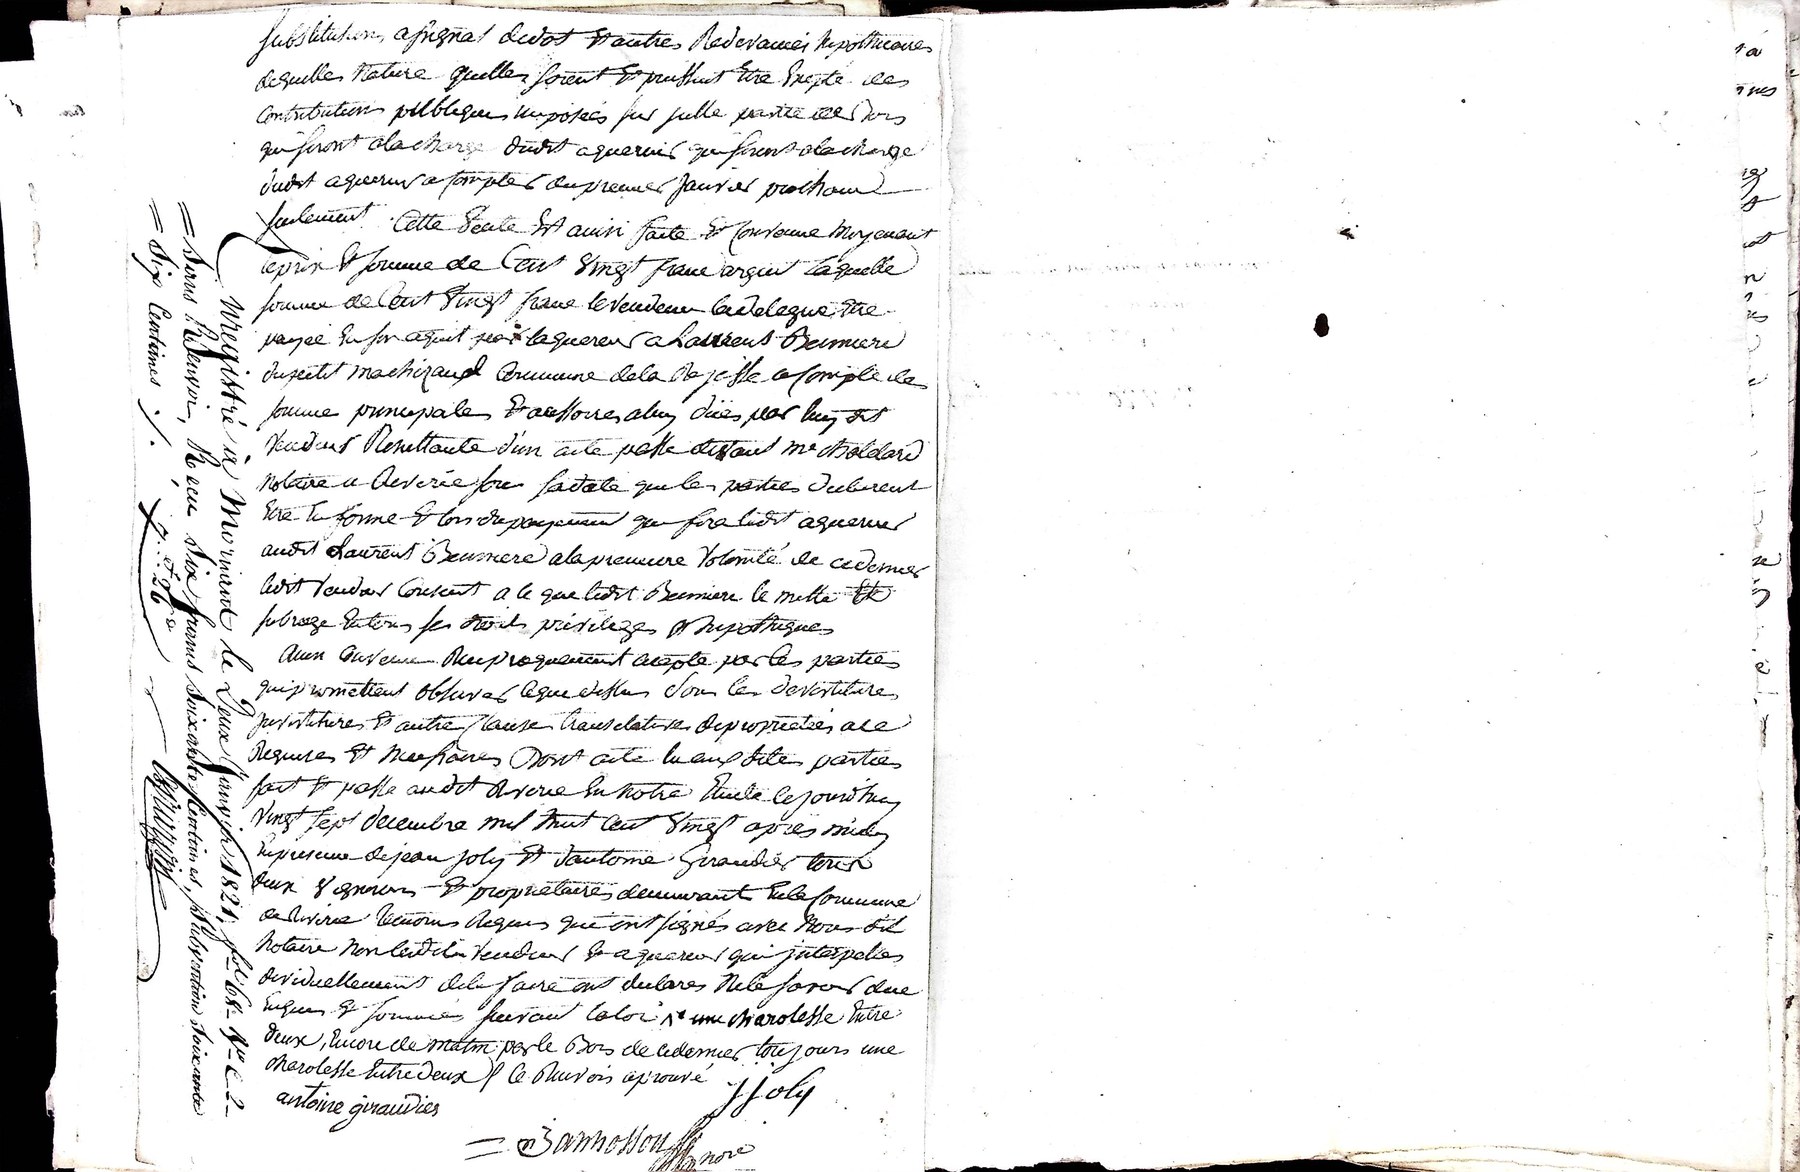 substitutions, assignat de dot et autres Redevances hypothecaires
dequelles Nature quelles soient et puissent Etre Excepté des
contributions publiques imposées sur sulle partie de Bois
qui seront alacharge dudit aquereur qui seront alacharge
dudit aquereur a Compter du premier Janvier prochain
seulement. Cette Vente Est ainsi faite Et Convenue Moyenant
leprix Et somme de Cent Vingt franc argent laquelle
somme de Cent Vingt franc le Vendeur la delegue Etre
payée En son aquit par laquereur a Laurent Bermiere
du petit machizaud Commune de la Rajasse a Compte de
somme principales Et acessoires a luy düe par luy dit
Vendeur Resultante d'un acte passé devant Me
Notaire a Riverie sous sa date que les parties declarent
Etre En forme Et lors du payement que fera ledit aquereur
audit Laurent Bermiere a la premiere Volonté de ce dernier
ledit Vendeur Consent a ce que ledit Bermiere le mette Et
subroge En tous ses droits privileges Et hypotheques
Ainsi Convenu Reciproquement accepté par les parties
qui promettent observer ce que dessus sous les devestitures
investitures Et autre Clause translatives de proprietés a ce
Requises Et Necessaires Dont acte lu aux dites parties
fait Et passé audit Riverie En Notre Etude le jourd'huy
Vingt sept decembre mil huit Cent Vingt apres midy
En presence de jean joly Et d'antoine Giraudier tous
deux Vignerons Et proprietaires demeurant En la Commune
de Riverie temoins Requis qui ont signés avec Nous dit
Notaire Non lesdits Vendeur Et aquereur qui interpellés
dividuellement de le faire ont declarés Ne le savoir de ce
Enquis Et sommés suivant la loi une charolesse Entre
deux, Encore de matin par le Bois de ce dernier toujours une
charolesse Entre deux le Renvois aprouvé
antoine giraudier
J joly
nore
Enregistré à Mornant le Deux Janvier 1821, fol. 68
Sans Renvoi, Reçu Six francs Soixante Centimes, Subvention Soixante
Six Centimes